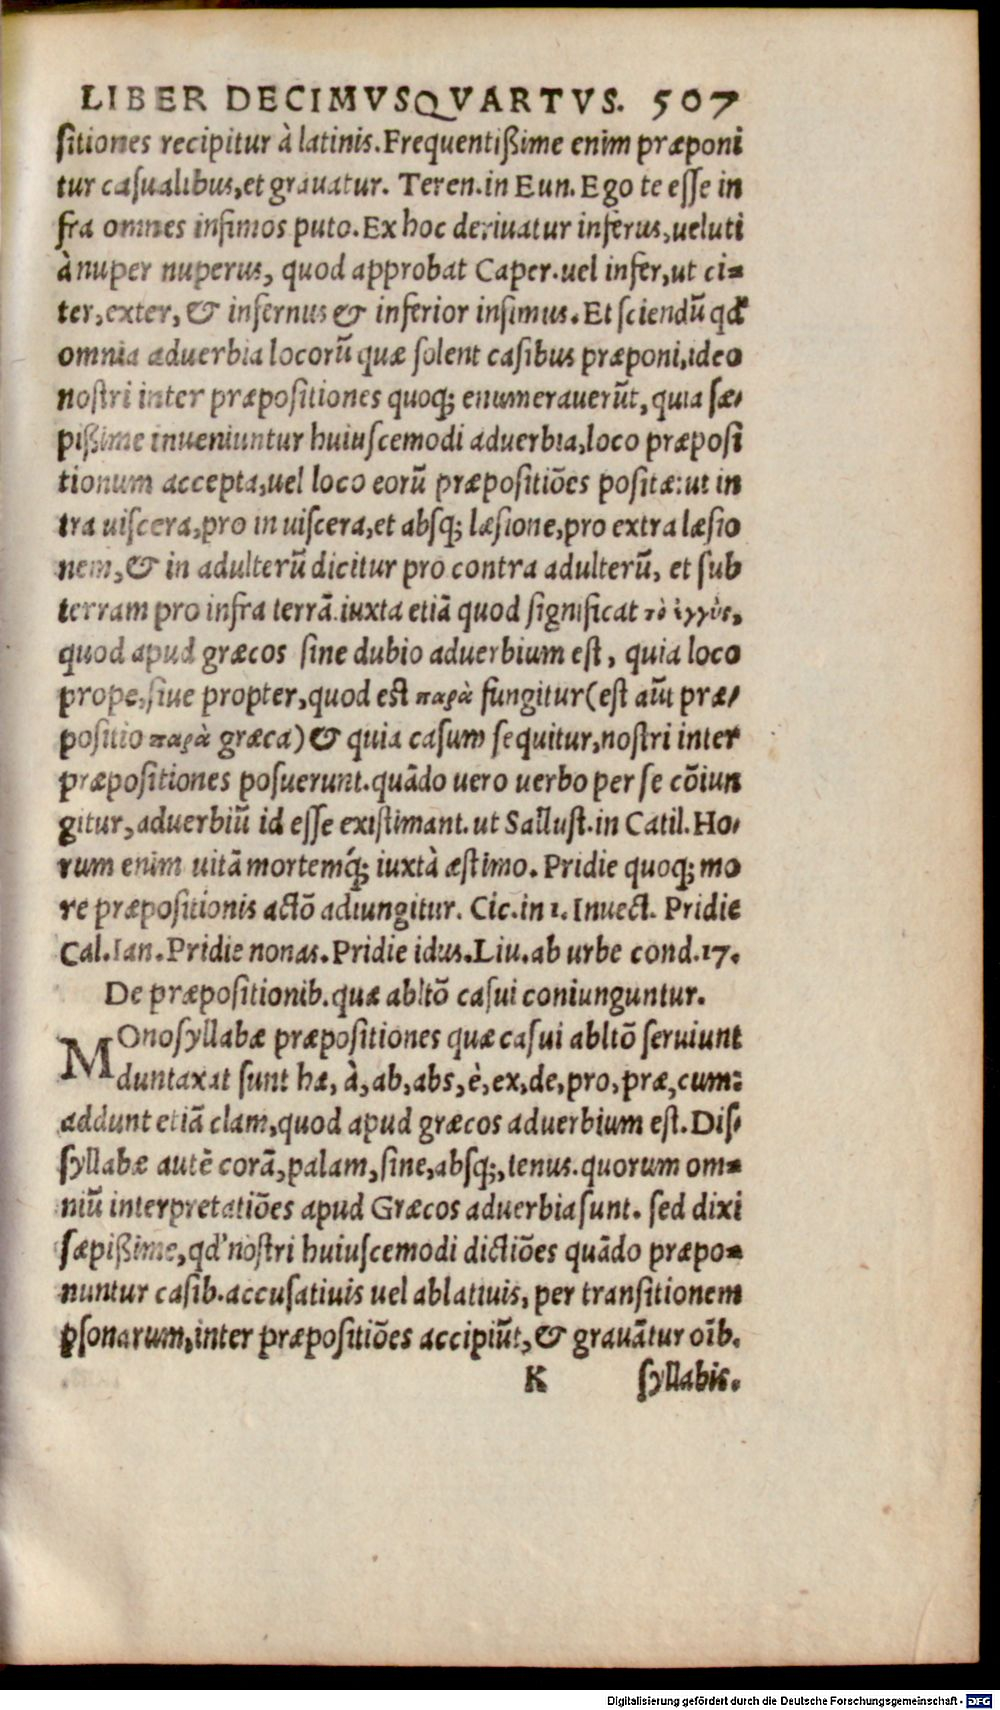 LIBER DECIMVSQVARTVS. 507
sitiones recipitur à latinis. Frequentißime enim præponi
tur casualibus, et grauatur. Teren. in Eun. Ego te esse in
fra omnes infimos puto. Ex hoc deriuatur inferus, ueluti
à nuper nuperus, quod approbat Caper. uel infer, ut ci=
ter, exter, & infernus & inferior infimus. Et sciendũ qđ
omnia aduerbia locorũ quæ solent casibus præponi, ideo
nostri inter præpositiones quoq; enumerauerũt, quia sæ/
pißime inueniuntur huiuscemodi aduerbia, loco præposi
tionum accepta, uel loco eorũ præpositiões positæ: ut in
tra uiscera, pro in uiscera, et absq; læsione, pro extra læsio
nem, & in adulterũ dicitur pro contra adulterũ, et sub
terram pro infra terrã. iuxta etiã quod significat τὸ ἐγγὺς,
quod apud græcos sine dubio aduerbium est, quia loco
prope, siue propter, quod est παρὰ fungitur (est aũt præ/
positio παρὰ græca) & quia casum sequitur, nostri inter
præpositiones posuerunt. quãdo uero uerbo per se cõiun
gitur, aduerbiũ id esse existimant. ut Sallust. in Catil. Ho/
rum enim uitã mortemq́; iuxtà æstimo. Pridie quoq; mo
re præpositionis actõ adiungitur. Cic. in 1. Inuect. Pridie
Cal. Ian. Pridie nonas. Pridie idus. Liu. ab urbe cond. 17.
De præpositionib. quæ abltõ casui coniunguntur.
MOnosyllabæ præpositiones quæ casui abltõ seruiunt
duntaxat sunt hæ, à, ab, abs, è, ex, de, pro, præ, cum:
addunt etiã clam, quod apud græcos aduerbium est. Dis/
syllabæ autẽ corã, palam, sine, absq;, tenus. quorum om=
niũ interpretatiões apud Græcos aduerbia sunt. sed dixi
sæpißime, qđ nostri huiuscemodi dictiões quãdo præpo=
nuntur casib. accusatiuis uel ablatiuis, per transitionem
ꝑsonarum, inter præpositiões accipiũt, & grauãtur oĩb.
K syllabis.
Digitalisierung gefördert durch die Deutsche Forschungsgemeinschaft - DFG